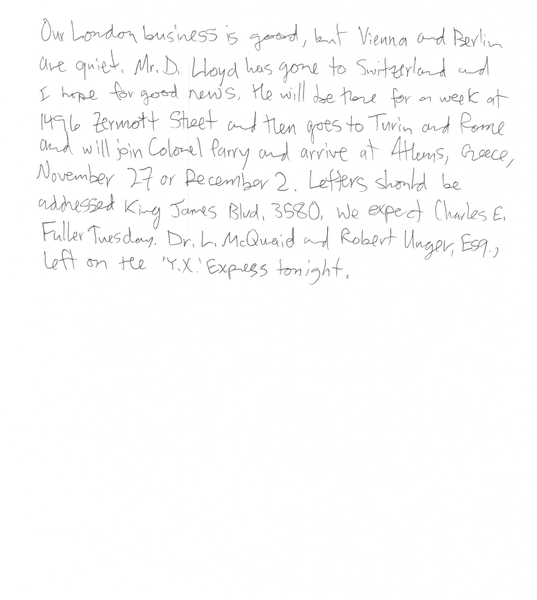 Our London business is good, but Vienna and Berlin
are quiet. Mr. D. Lloyd has gone to Switzerland and
I hope for good news. He will be there for a week at
1496 Zermott Street and then goes to Turin and Rome
and will join Colonel Parry and arrive at Athens, Greece,
November 27 or December 2. Letters should be
addressed King James Blvd, 3580. We expect Charles E.
Fuller Tuesday. Dr. L. McQuaid and Robert Unger, Esq.,
left on the 'Y.X.' Express tonight.